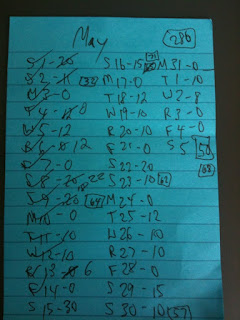 May 286
S 1-20 S 16-15 M 31-0
S 2-11 33 M 17-0 T 1-10
M 3-0 T 18-12 W 2-8
T 4-12 0 W 19-10 R 3-0
W 5-12 R 20-10 F 4-0
R 6-0 12 F 21-0 S 5 50
F 7-0 S 22-20
S 8-20 22 S 23-10 62
S 9-20 64 M 24-0
M 10-0 T 25-12
T 11-10 W 26-10
W 12-10 R 27-10
R 13-0 6 F 28-0
F 14-0 S 29-15
S 15-30 S 30-10 (57)